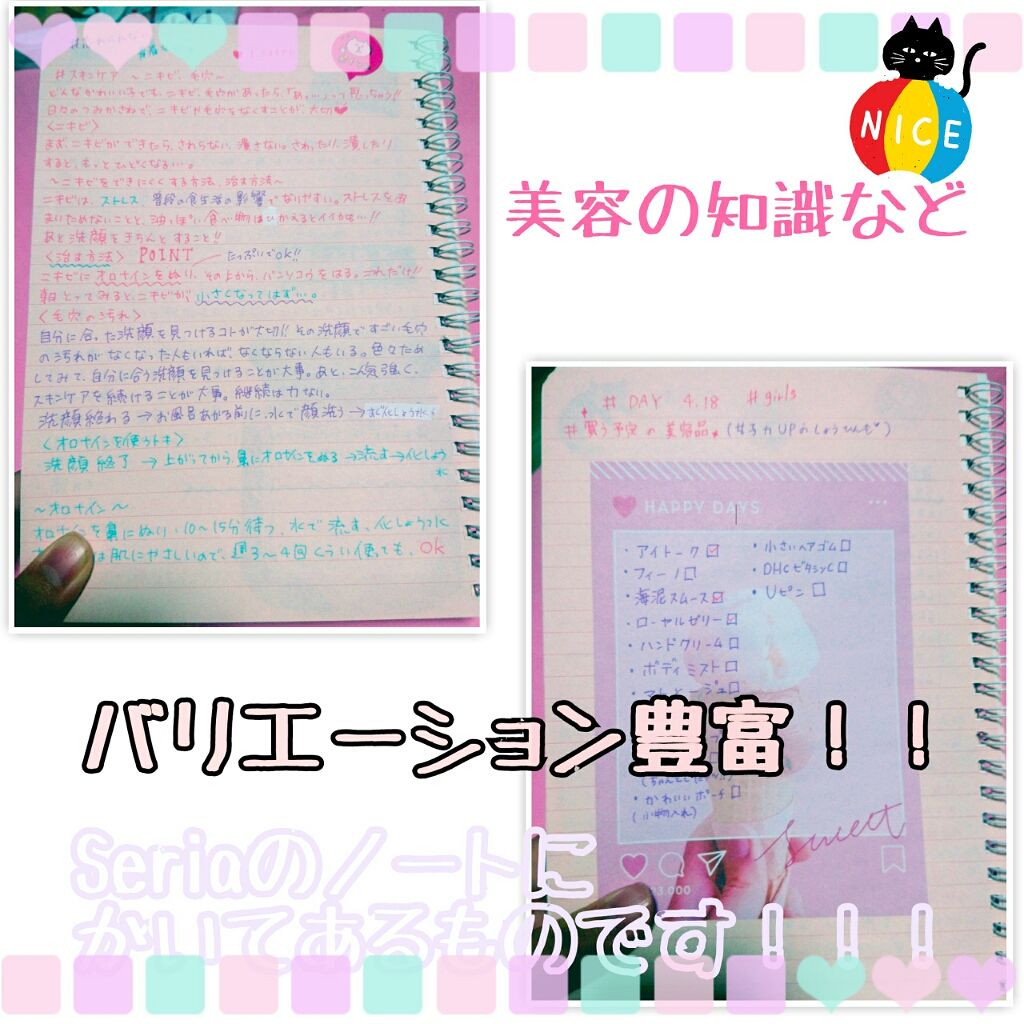 NICE
美容の知識など
#スキンケア ~ニキビ、毛穴~
どんなかわいい子でも、ニキビ、毛穴があったら、「あ、…」って思っちゃう!!
日々のつみかさねで、ニキビや毛穴をなくすことが、大切♥
<ニキビ>
まず、ニキビができたら、さわらない、潰さない。さわったり、潰したり
すると、もっとひどくなるい。
~ニキビをできにくくする方法、治す方法~
ニキビは、ストレス、普段の食生活の影響でなりやすい。ストレスをあ
まりためないことと、油っぽい食べ物はひかえるとイイかな…!!
あと洗顔をきちんとすること!!
<治す方法> POINT たっぷりでOK!!
ニキビにオロナインをぬり、その上から、バンソウコウをはる。これだけ!!
朝とってみると、ニキビが、小さくなってはず…。
<毛穴の汚れ>
自分に合った洗顔を見つけるコトが大切!! その洗顔ですごい毛穴
の汚れがなくなった人もいれば、なくならない人もいる。色々ため
してみて、自分に合う洗顔を見つけることが大事。あと、こん気強く、
スキンケアを続けることが大事。継続は力ない。
洗顔終わる→お風呂あがる前に、水で顔洗う→
<オロナインを使うトキ>
洗顔終了→上がってから、鼻にオロナインをぬる→流す→化しょう
水
~オロナイン~
オロナインを鼻にぬり、10~15分待つ、水で流す、化しょう水
は肌にやさしいので、週3~4回くらい使っても、OK
# DAY 4.18 #girls
#買う予定の美容品。(女子力UPのしょうひんも)
HAPPY DAYS
・アイトーク☑ ・小さいヘアゴム□
・フィーノ□ ・DHCビタミンC□
・海泥スムース☑ ・Uピン□
・ローヤルゼリー☑
・ハンドクリーム□
・ボディミスト□
・かわいいポーチ□
(小物入れ)
Sweet
バリエーション豊富!!
Seriaのノートに
かいてあるものです!!!